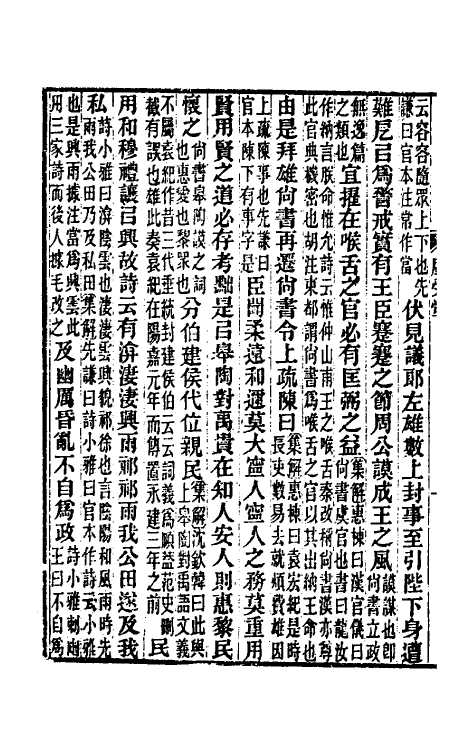 云容容隨眾上下也先謙曰官本注常作當伏見議郎左雄數上封事至引陛下身遭
難厄㠯爲警戒實有王臣蹇蹇之節周公謨成王之風謨謀也即尚書立政
無逸篇之類也宜擢在喉舌之官必有匡弼之益集解惠棟曰漢官儀曰尚書虞官也書曰龍汝
作納言朕命惟允詩云惟仲山甫王之喉舌秦改稱尚書漢亦尊此官典機密也胡注東都謂尚書爲喉舌之官以其出納王命也
由是拜雄尚書再遷尚書令上疏陳曰集解惠棟曰袁宏紀是時長吏數易去就煩費雄因
上疏陳事也先謙曰官本陳下有事字是臣聞柔遠和邇莫大寧人寧人之務莫重用
賢用賢之道必存考黜是㠯皋陶對禹貴在知人安人則惠黎民
懷之尚書皋陶謨之詞也惠愛也黎眾也分伯建侯代位親民集解沈欽韓曰此與上皋陶對禹語文義
不屬袁紀作昔三代垂統封建侯伯云云詞義爲順益范史刪截有誤也雄此奏袁紀在陽嘉元年而傳置永建三年之前民
用和穆禮讓㠯興故詩云有渰淒淒興雨祁祁雨我公田遂及我
私詩小雅曰渰陰雲也淒淒雲興貌祁徐也言陰陽和風雨時先雨我公田乃及私田集解先謙曰詩小雅曰官本作詩云小雅
也是興雨據注當爲興雲此用三家詩而後人據毛改之及幽厲昏亂不自爲政詩小雅刺幽王曰不自爲